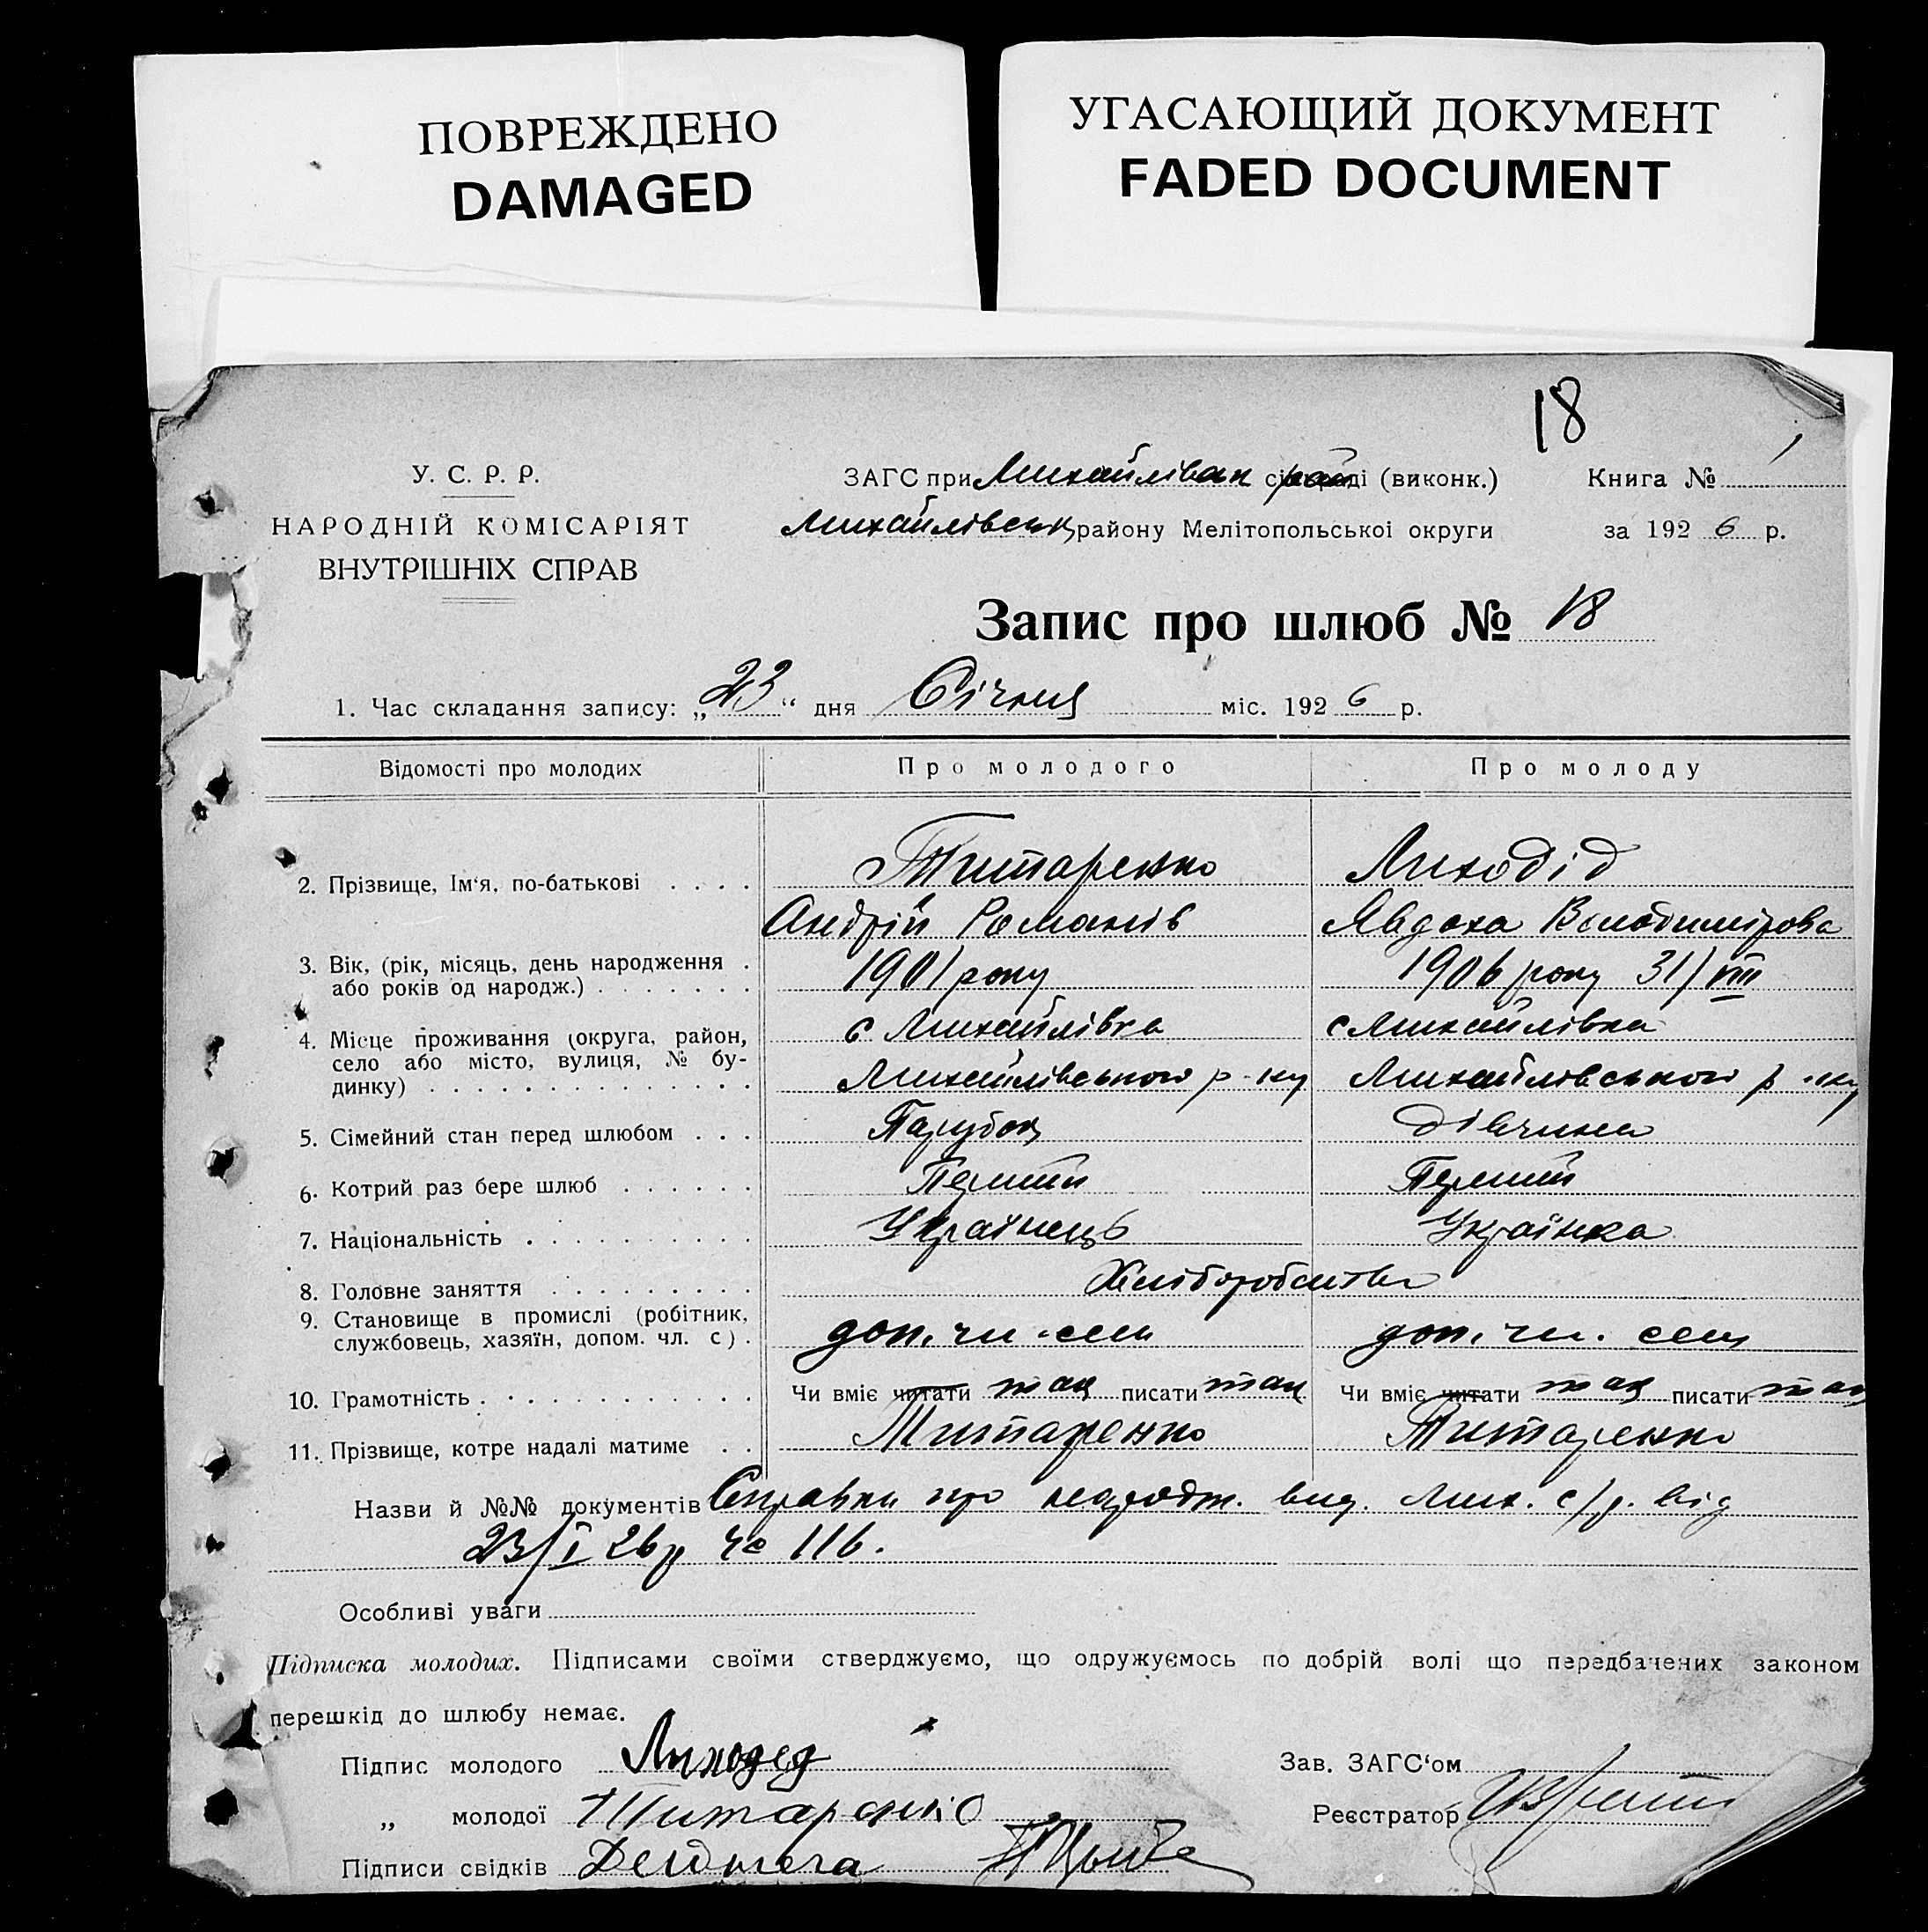 ПОВРЕЖДЕНО
DAMAGED
УГАСАЮЩИЙ ДОКУМЕНТ
FADED DOCUMENT
18
У. С. Р. Р.
НАРОДНІЙ КОМІСАРІЯТ
ВНУТРІШНІХ СПРАВ
ЗАГС при Михайлівськ (виконк.)
Михайлівськ району Мелітопольської округи
Книга № 1
за 1926 р.
Запис про шлюб № 18
1. Час складання запису: „23“ дня Січня міс. 1926 р.
Відомості про молодих Про молодого Про молоду
2. Прізвище, Ім‘я, по-батькові . . . . Титаренко Лиходід
Андрій Романів Явдоха Володимірова
3. Вік, (рік, місяць, день народження . 1901 року 1906 року 31/VIII
або років од народж.) . . . . . . .
4. Місце проживання (округа, район, с Михайлівка с Михайлівка
село або місто, вулиця, № бу-
динку) . . . . . . . . . . . . . . Михайлівського р-ну Михайлівського р-ну
5. Сімейний стан перед шлюбом . . . Парубок Дівчина
6. Котрий раз бере шлюб . . . . . . Перший Перший
7. Національність . . . . . . . . . . Українець Українка
8. Головне заняття . . . . . . . . . Хліборобство
9. Становище в промислі (робітник, доп. чл. сем доп. чл. сем
службовець, хазяїн, допом. чл. с) .
10. Грамотність . . . . . . . . . . . Чи вміє читати так писати так Чи вміє читати так писати так
11. Прізвище, котре надалі матиме . . Титаренко Титаренко
Назви й №№ документів Справки про народж. вид. Мих. с/р. від
23/I 26р Чо 116.
Особливі уваги
Підписка молодих. Підписами своїми стверджуємо, що одружуємось по добрій волі що передбачених законом
перешкід до шлюбу немає.
Підпис молодого Лиходед
„ молодої Титаренко
Підписи свідків
Зав. ЗАГС‘ом
Реєстратор